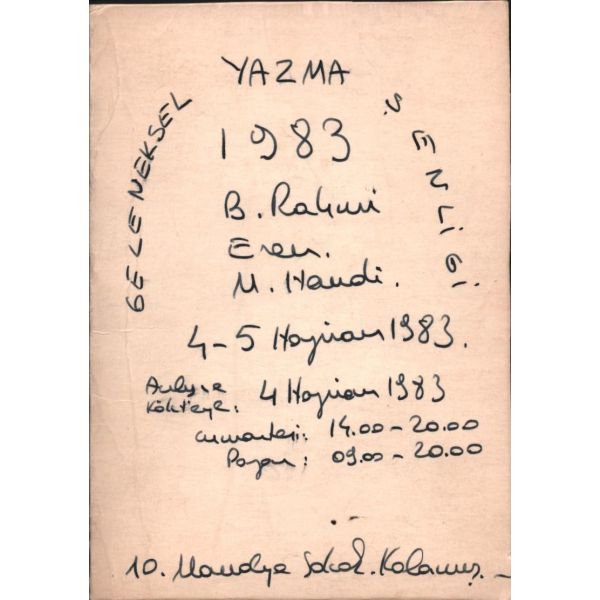 GELENEKSEL YAZMA ŞENLİĞİ
1983
B. Rahmi
Eren.
M. Hamdi.
4-5 Haziran 1983.
Açılış ve
Kokteyl: 4 Haziran 1983
Cumartesi: 14.00-20.00
Pazar: 09.00-20.00
10. Mandıra Sokak. Kalamış.-